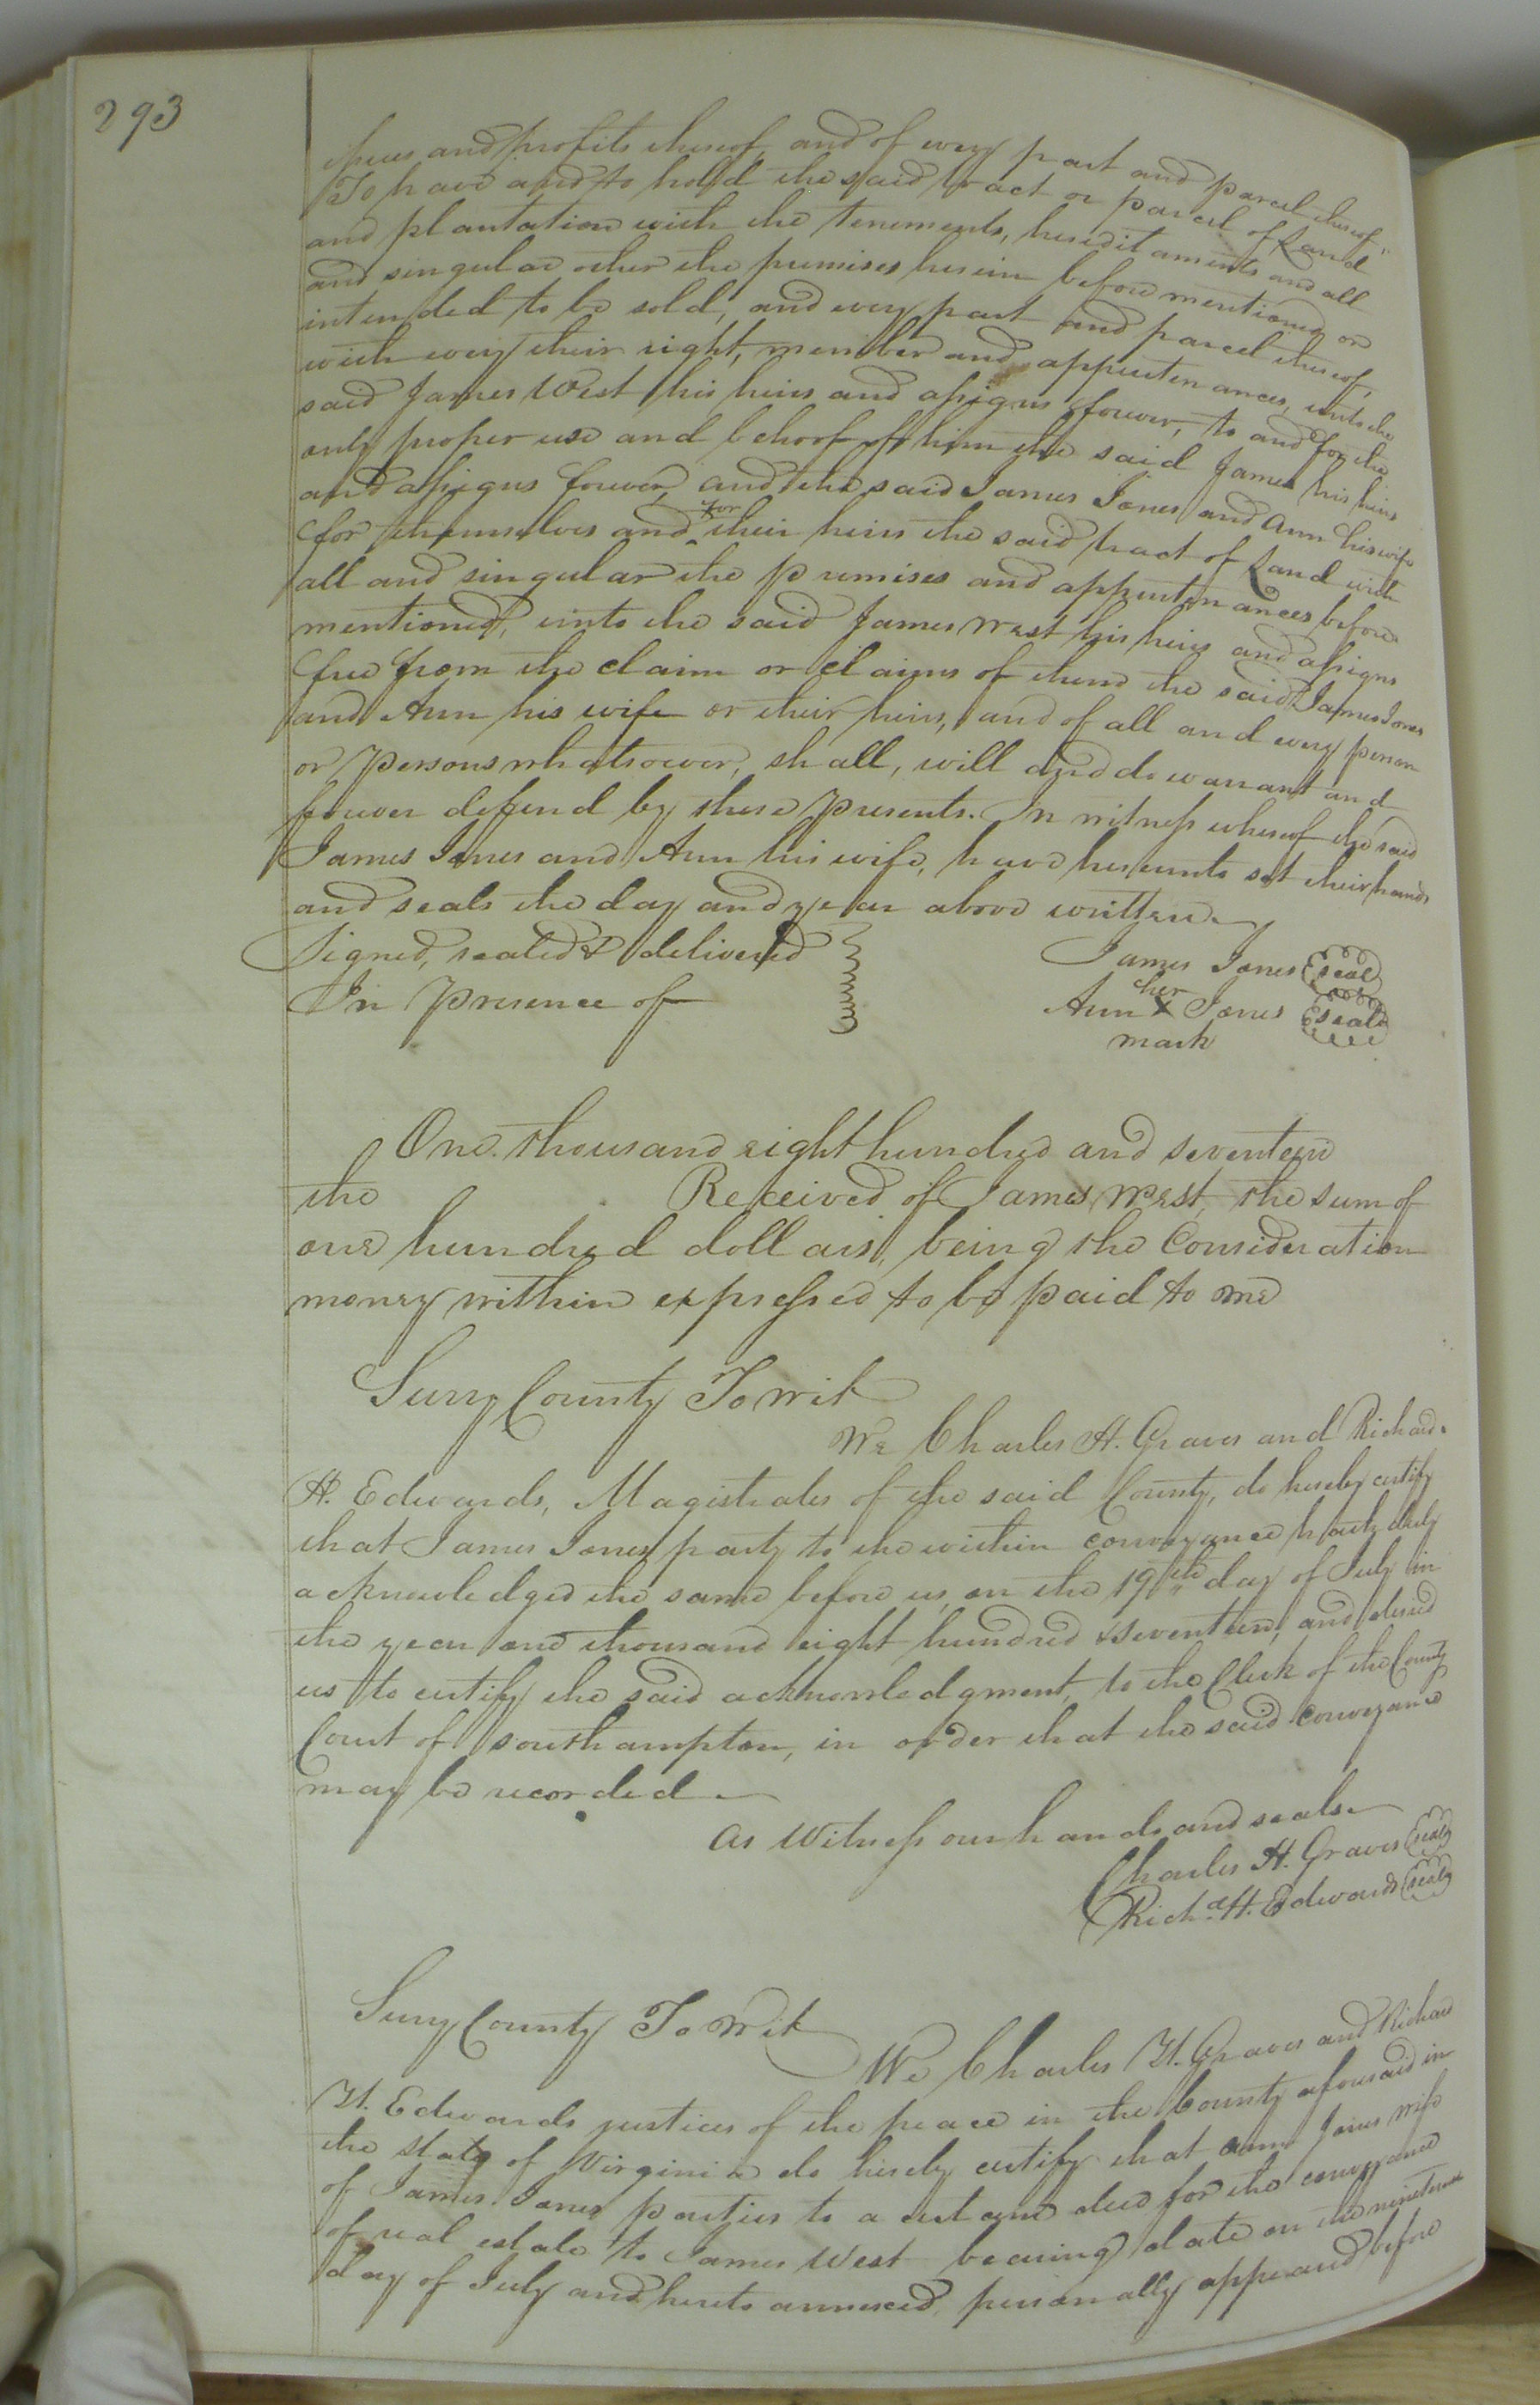 293
issues and profits thereof, and of every part and parcel thereof"
To have and to hold the said tract or parcel of Land
and plantation with the tenements, hereditaments and all
and singular other the premises herein before mentioned or
intended to be sold, and every part and parcel thereof,
with every their right, member and appurtenances, unto the
said James West his heirs and assigns forever, to and for the
only proper use and behoof of him the said James his heirs
and assigns forever, and the said James Jones and Ann his wife
for themselves and for their heirs the said tract of Land with
all and singular the premises and appurtenances before
mentioned, unto the said James West his heirs and assigns
free from the claim or claims of them the said James Jones
and Ann his wife or their heirs, and of all and every person
or persons whatsoever, shall, will and do warrant and
forever defend by these presents. In witness whereof the said
James Jones and Ann his wife, have hereunto set their hands
and seals the day and year above written.
Signed, sealed & delivered
In Presence of
James Jones seal
Ann her X mark Jones seal
One thousand eight hundred and seventeen
the Received of James West, the sum of
one hundred dollars, being the Consideration
money within expressed to be paid to me
Surry County To wit
We Charles H. Graves and Richard
H. Edwards, Magistrates of the said County, do hereby certify
that James Jones party to the within conveyance hath duly
acknowledged the same before us, on the 19th day of July in
the year one thousand eight hundred & seventeen, and desired
us to certify the said acknowledgment, to the Clerk of the County
Court of southampton, in order that the said conveyance
may be recorded
as Witness our hands and seals
Charles H. Graves seal
Richd. H. Edwards seal
Surry County To Wit
We Charles H. Graves and Richard
H. Edwards justices of the peace in the County aforesaid in
the state of Virginia do hereby certify that Jones wife
of James Jones parties to a certain deed for the conveyance
of real estate to James West bearing date on the nineteenth
day of July and hereto annexed, personally appeared before